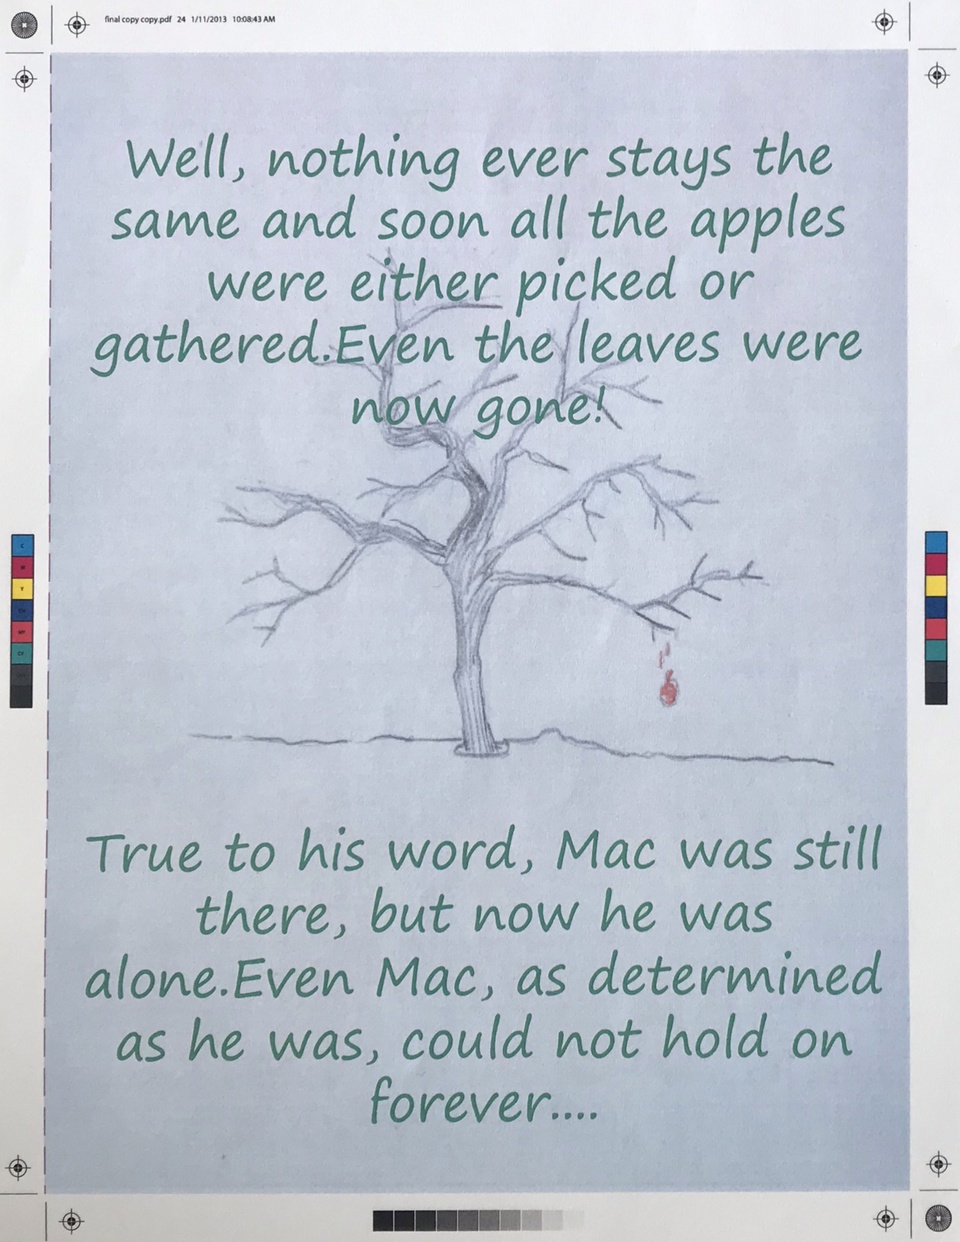 final copy copy.pdf 24 1/11/2013 10:08:43 AM
Well, nothing ever stays the
same and soon all the apples
were either picked or
gathered.Even the leaves were
now gone!
True to his word, Mac was still
there, but now he was
alone.Even Mac, as determined
as he was, could not hold on
forever....